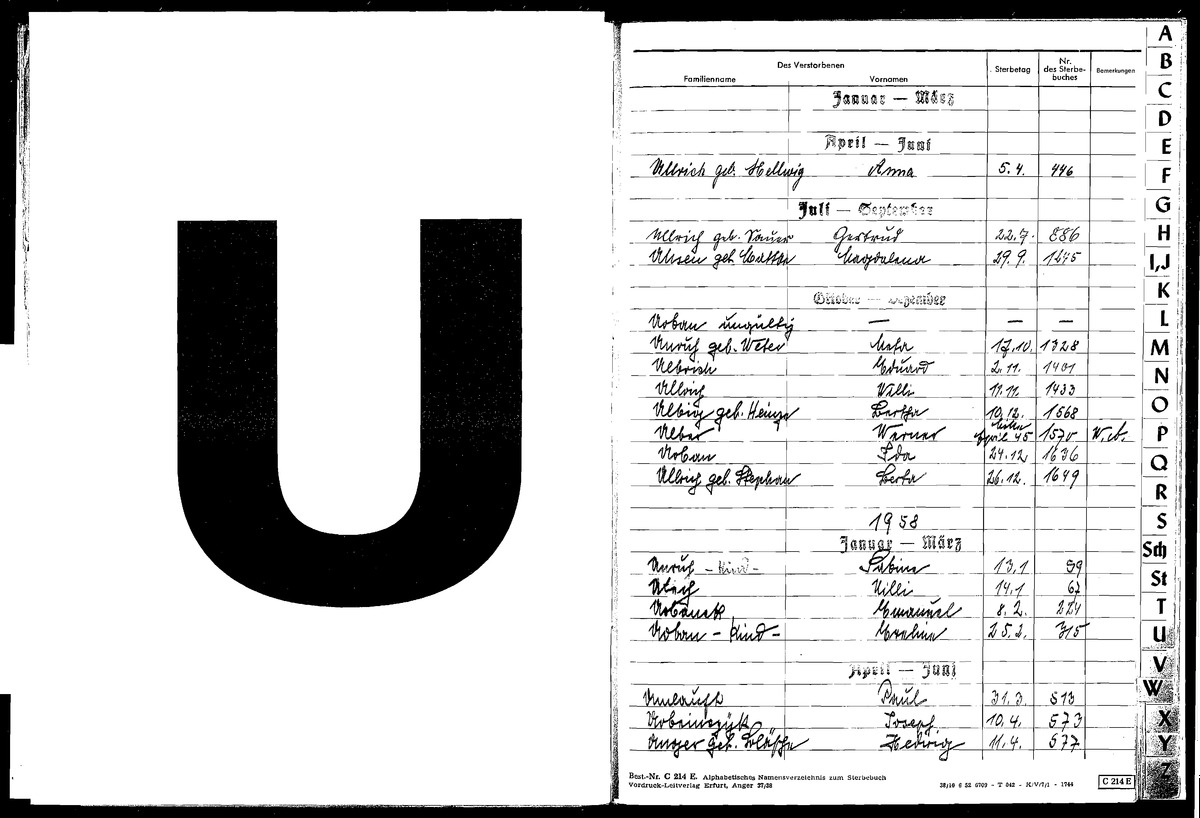 U
Des Verstorbenen
Familienname Vornamen Sterbetag Nr. des Sterbebuches Bemerkungen
Januar — März
April — Juni
Ullrich geb. Hellwig Anna 5.4. 446
Juli — September
Ullrich geb. Sauer Gertrud 22.7. 886
geb. Magdalena 29.9. 1245
Oktober — Dezember
Urban ungültig — — —
Unruh geb. Weber Meta 17.10. 1328
Ulbrich Eduard 2.11. 1401
Ullrich Willi 11.11. 1433
Ulbig geb. Heinze Bertha 10.12. 1568
Ulber Werner April 45 1570
Urban Ida 24.12. 1636
Ullrich geb. Stephan Berta 26.12. 1649
1958
Januar — März
Unruh - Kind - Sabine 13.1 59
Willi 14.1 67
Urbanek Emanuel 8.2. 224
Urban - Kind - 25.2. 315
April — Juni
Umlauft Paul 31.3. 513
Urbainczyk Joseph 10.4. 573
Unger geb. Hedwig 11.4. 577
Best.-Nr. C 214 E. Alphabetisches Namensverzeichnis zum Sterbebuch
Vordruck-Leitverlag Erfurt, Anger 37/38 C 214 E
A
B
C
D
E
F
G
H
I,J
K
L
M
N
O
P
Q
R
S
Sch
St
T
U
V
W
X
Y
Z